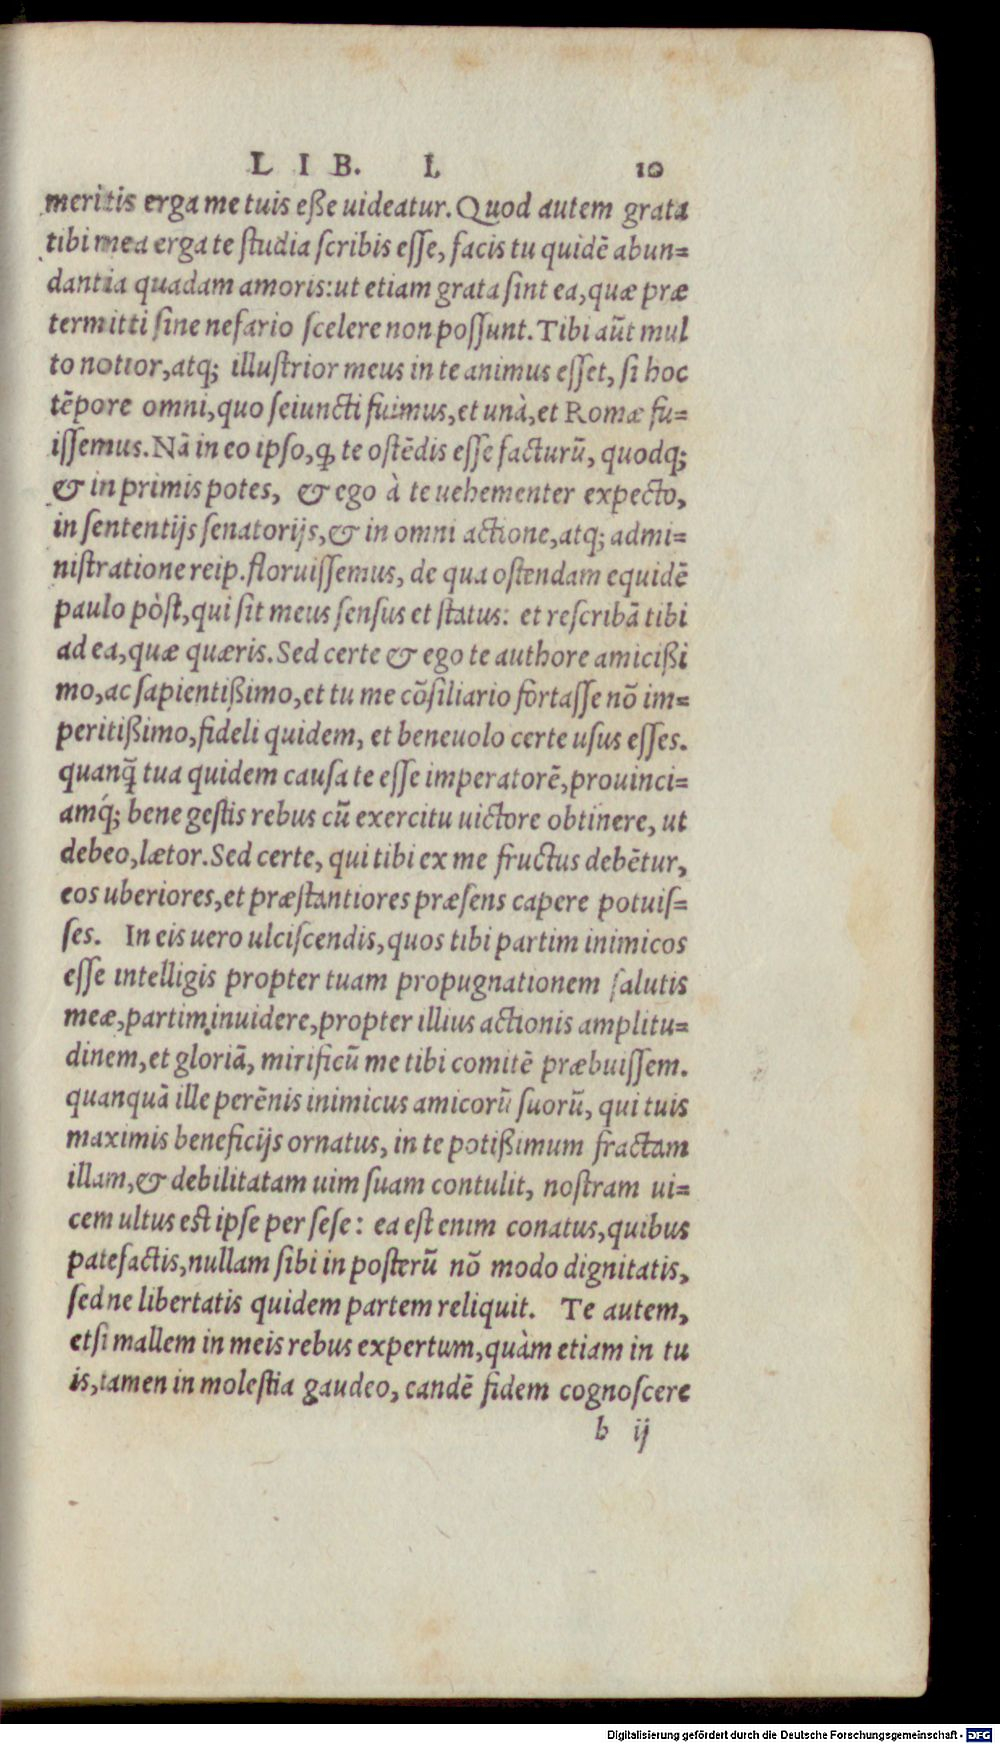 LIB. I. 10
meritis erga me tuis eße uideatur. Quod autem grata
tibi mea erga te ſtudia ſcribis eſſe, facis tu quidē abun=
dantia quadam amoris: ut etiam grata ſint ea, quæ præ
termitti ſine nefario ſcelere non poſſunt. Tibi aūt mul
to notior, atq; illuſtrior meus in te animus eſſet, ſi hoc
tēpore omni, quo ſeiuncti fuimus, et unà, et Romæ fu=
iſſemus. Nā in eo ipſo, ꝙ te oſtēdis eſſe facturū, quodq;
& in primis potes, & ego à te uehementer expecto,
in ſententijs ſenatorijs, & in omni actione, atq; admi=
niſtratione reip. floruiſſemus, de qua oſtendam equidē
paulo pòſt, qui ſit meus ſenſus et ſtatus: et reſcribā tibi
ad ea, quæ quæris. Sed certe & ego te authore amicißi
mo, ac ſapientißimo, et tu me cōſiliario fortaſſe nō im=
peritißimo, fideli quidem, et beneuolo certe uſus eſſes.
quanq̄ tua quidem cauſa te eſſe imperatorē, prouinci=
amq́; bene geſtis rebus cū exercitu uictore obtinere, ut
debeo, lætor. Sed certe, qui tibi ex me fructus debētur,
eos uberiores, et præſtantiores præſens capere potuiſ=
ſes. In eis uero ulciſcendis, quos tibi partim inimicos
eſſe intelligis propter tuam propugnationem ſalutis
meæ, partim inuidere, propter illius actionis amplitu=
dinem, et gloriā, mirificū me tibi comitē præbuiſſem.
quanquā ille perēnis inimicus amicorū ſuorū, qui tuis
maximis beneficijs ornatus, in te potißimum fractam
illam, & debilitatam uim ſuam contulit, noſtram ui=
cem ultus eſt ipſe per ſeſe: ea eſt enim conatus, quibus
patefactis, nullam ſibi in poſterū nō modo dignitatis,
ſed ne libertatis quidem partem reliquit. Te autem,
etſi mallem in meis rebus expertum, quàm etiam in tu
is, tamen in moleſtia gaudeo, eandē fidem cognoſcere
b ij
Digitalisierung gefördert durch die Deutsche Forschungsgemeinschaft - DFG